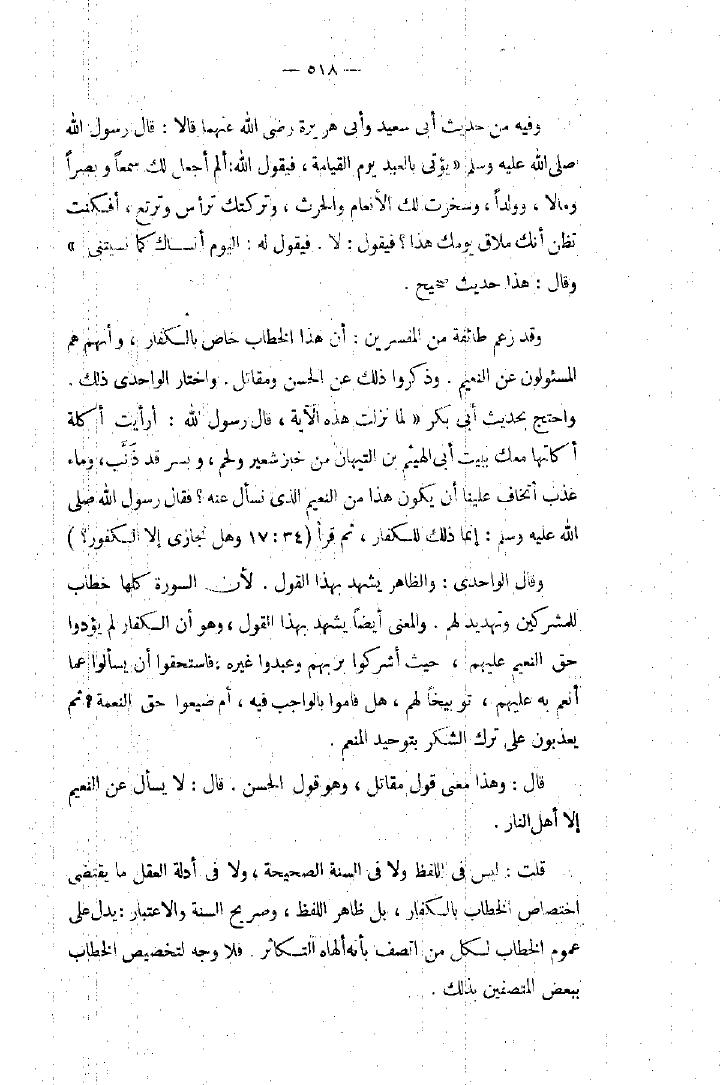 — ٥١٨ —
وفيه من حديث أبى سعيد وأبى هريرة رضى الله عنهما قالا : قال رسول الله
صلى الله عليه وسلم « يؤتى بالعبد يوم القيامة ، فيقول الله : ألم أجعل لك سمعاً وبصراً
ومالا ، وولداً ، وسخرت لك الأنعام والحرث ، وتركتك ترأس وترتع ، أفكنت
تظن أنك ملاق يومك هذا ؟ فيقول : لا . فيقول له : اليوم أنساك كما نسيتنى »
وقال : هذا حديث صحيح .
وقد زعم طائفة من المفسرين : أن هذا الخطاب خاص بالكفار ، وأنهم هم
المسئولون عن النعيم . وذكروا ذلك عن الحسن ومقاتل . واختار الواحدى ذلك .
واحتج بحديث أبى بكر « لما نزلت هذه الآية ، قال رسول الله : أرأيت أكلة
أكلتها معك ببيت أبى الهيثم بن التيهان من خبز شعير ولحم ، وبسر قد ذَنَّب ، وماء
عذب أتخاف علينا أن يكون هذا من النعيم الذى نسأل عنه ؟ فقال رسول الله صلى
الله عليه وسلم : إنما ذلك للكفار ، ثم قرأ ( ٣٤ : ١٧ وهل نجازى إلا الكفور ؟ )
وقال الواحدى : والظاهر يشهد بهذا القول . لأن السورة كلها خطاب
للمشركين وتهديد لهم . والمعنى أيضاً يشهد بهذا القول ، وهو أن الكفار لم يؤدوا
حق النعيم عليهم ، حيث أشركوا بربهم وعبدوا غيره ، فاستحقوا أن يسألوا عما
أنعم به عليهم ، توبيخاً لهم ، هل قاموا بالواجب فيه ، أم ضيعوا حق النعمة ؟ ثم
يعذبون على ترك الشكر بتوحيد المنعم .
قال : وهذا معنى قول مقاتل ، وهو قول الحسن . قال : لا يسأل عن النعيم
إلا أهل النار .
قلت : ليس فى اللفظ ولا فى السنة الصحيحة ، ولا فى أدلة العقل ما يقتضى
اختصاص الخطاب بالكفار ، بل ظاهر اللفظ ، وصريح السنة والاعتبار : يدل على
عموم الخطاب لكل من اتصف بأنه ألهاه التكاثر . فلا وجه لتخصيص الخطاب
ببعض المتصفين بذلك .